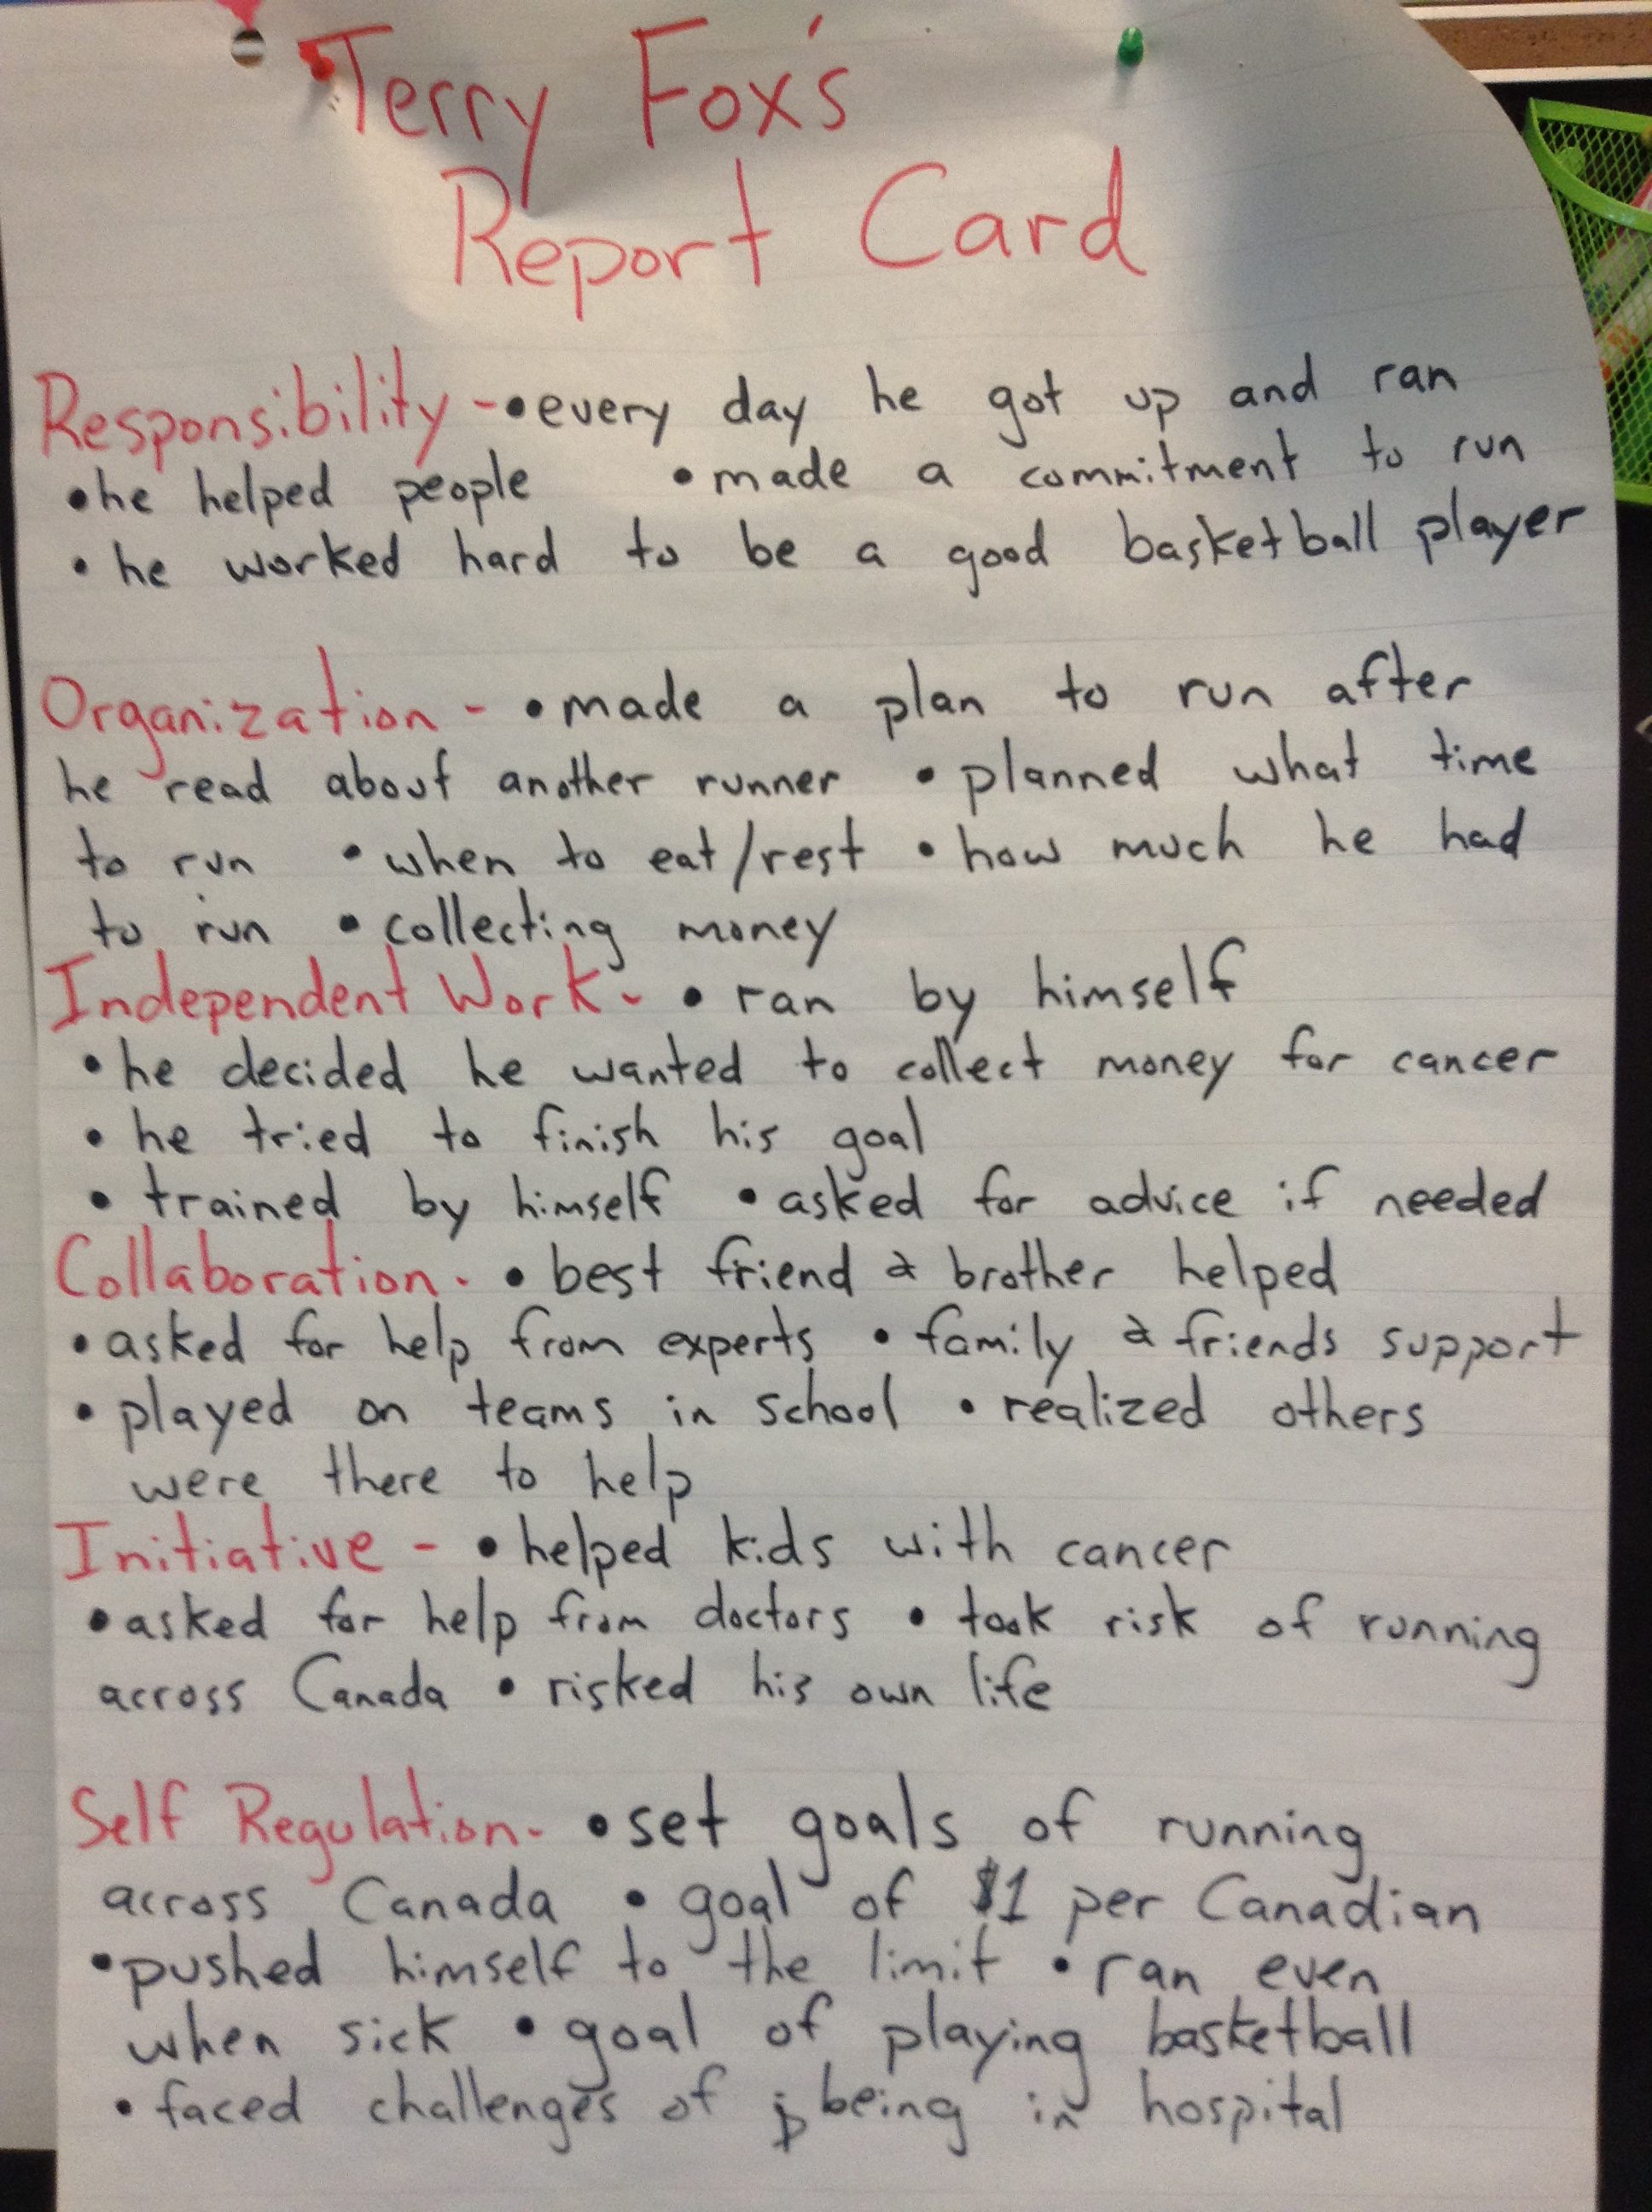 Terry Fox's
Report Card
Responsibility - • every day he got up and ran
• he helped people • made a commitment to run
• he worked hard to be a good basketball player
Organization - • made a plan to run after
he read about another runner • planned what time
to run • when to eat/rest • how much he had
to run • collecting money
Independent Work - • ran by himself
• he decided he wanted to collect money for cancer
• he tried to finish his goal
• trained by himself • asked for advice if needed
Collaboration - • best friend & brother helped
• asked for help from experts • family & friends support
• played on teams in school • realized others
were there to help
Initiative - • helped kids with cancer
• asked for help from doctors • took risk of running
across Canada • risked his own life
Self Regulation - • set goals of running
across Canada • goal of $1 per Canadian
• pushed himself to the limit • ran even
when sick • goal of playing basketball
• faced challenges of being in hospital